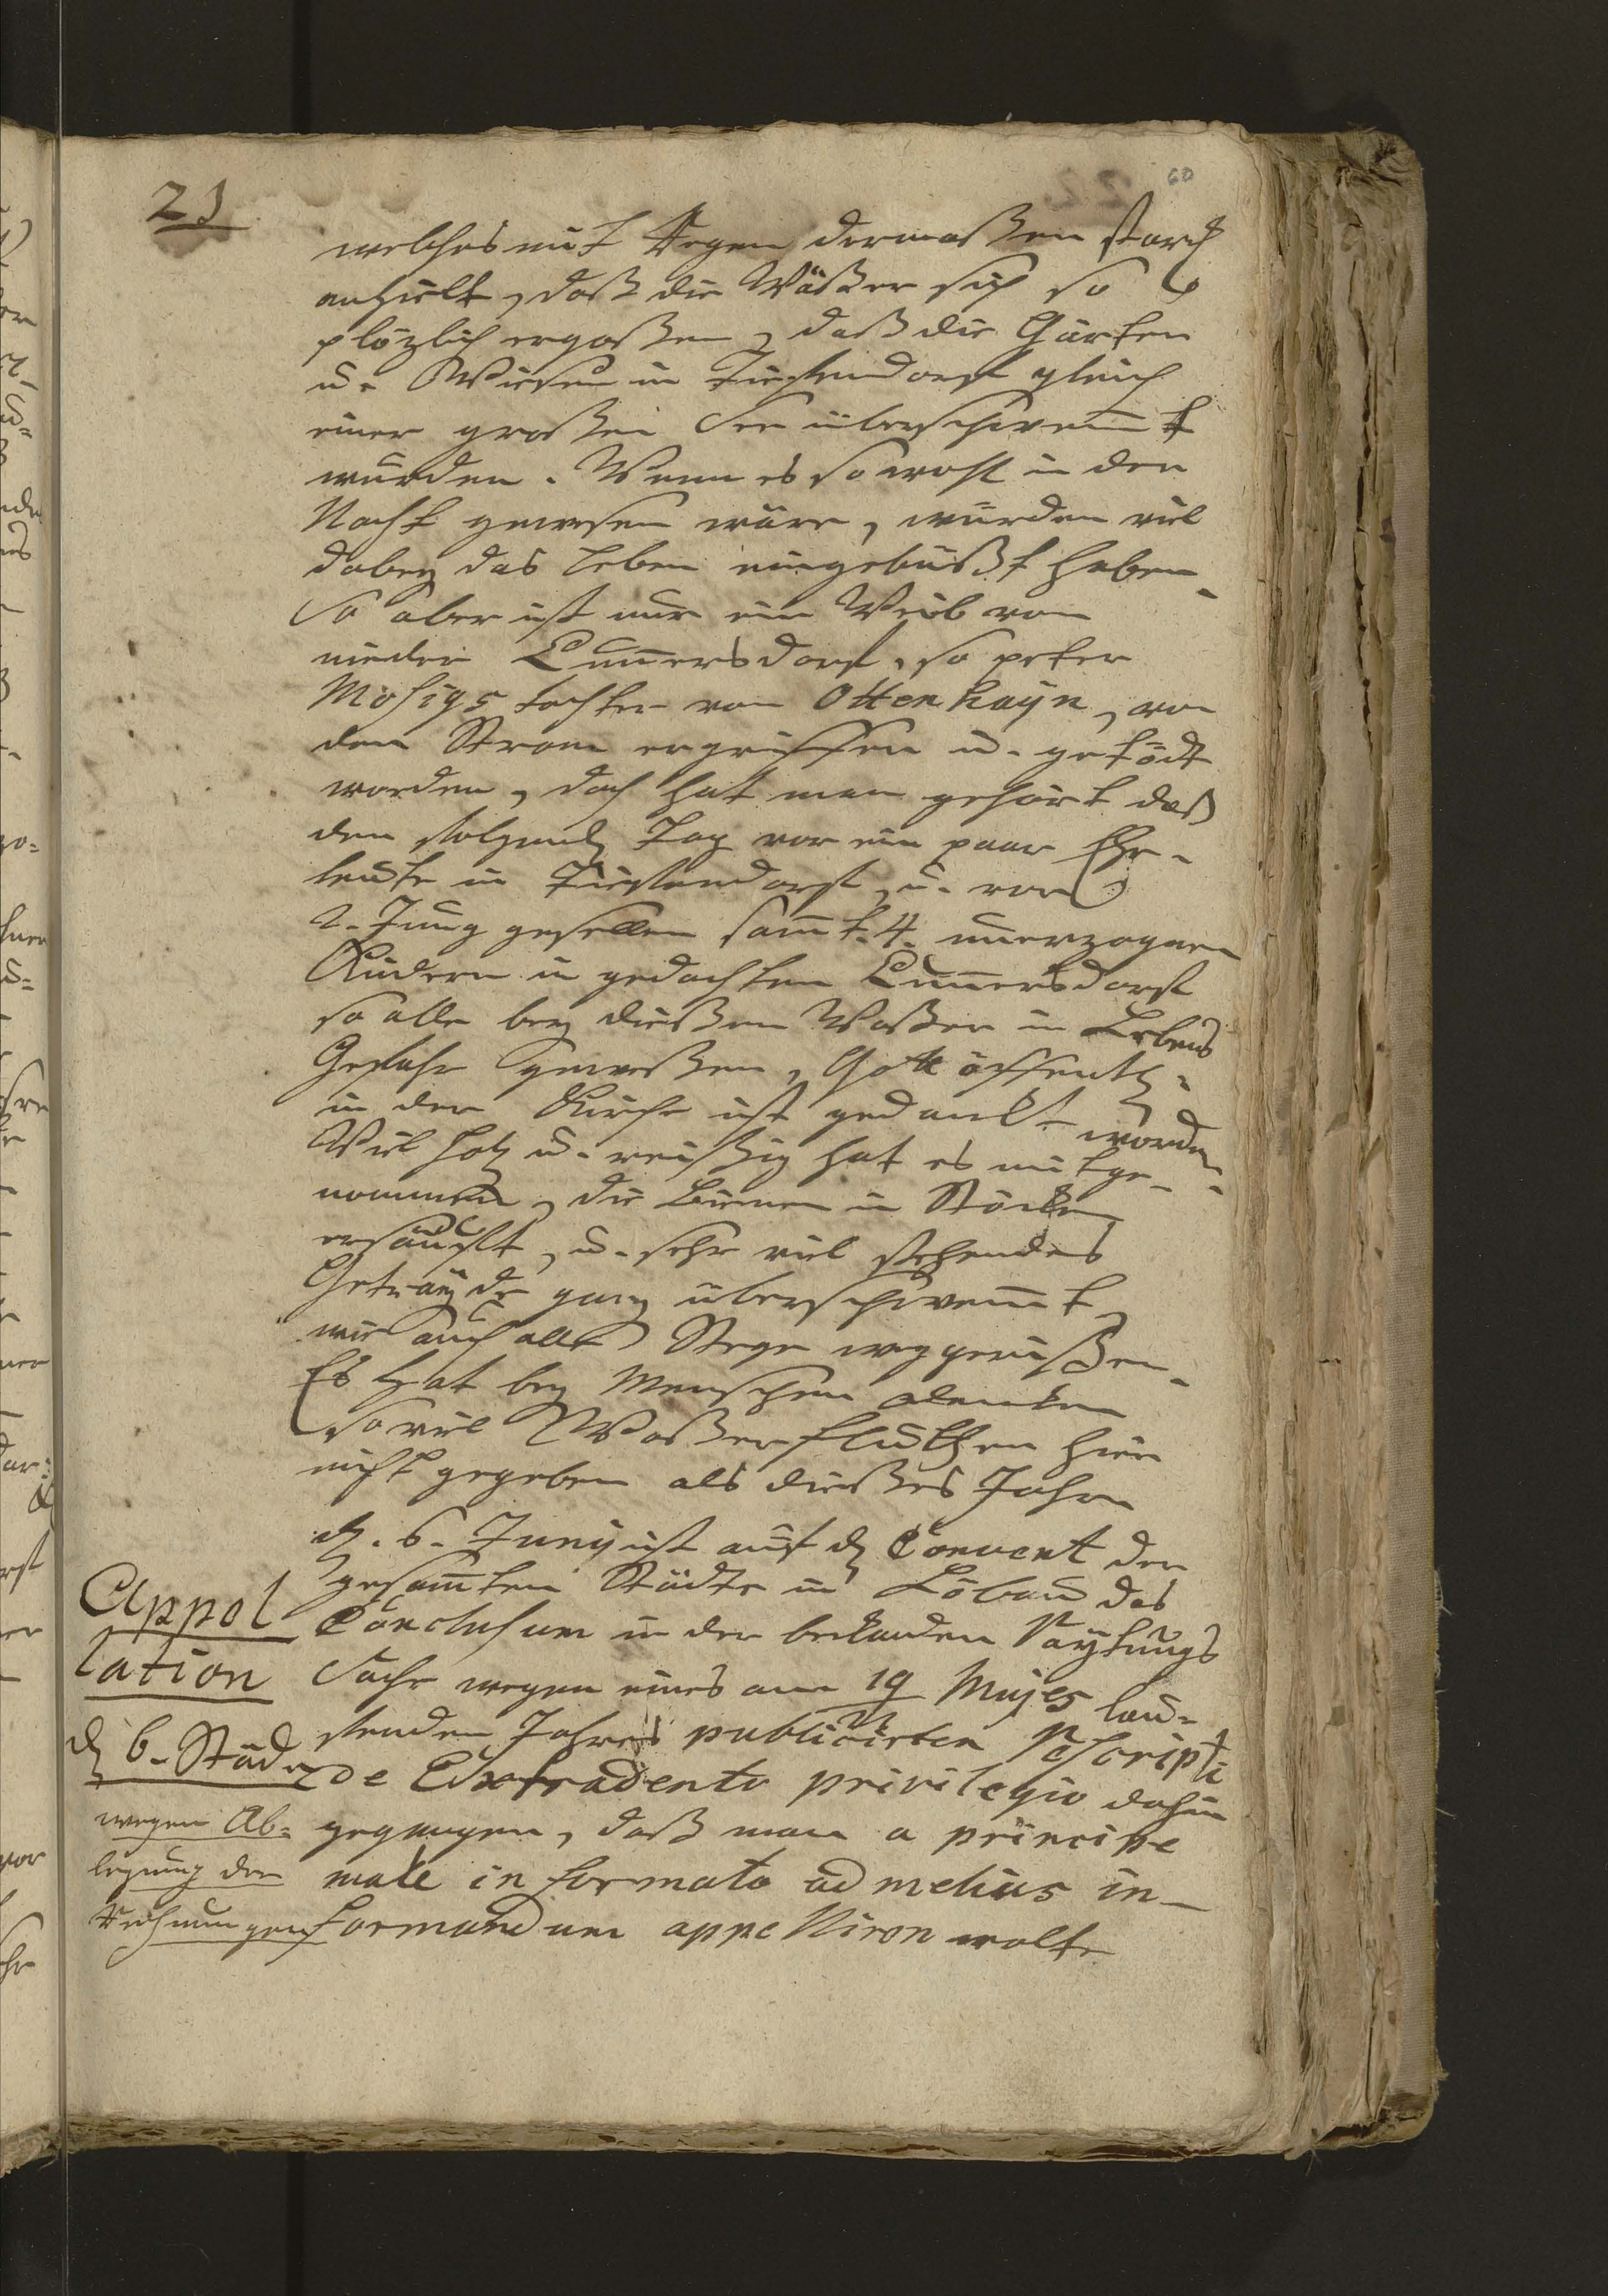 21
60
welches mit Regen dermaßen starck
anhielt, daß die Wäßer sich so
plözlich ergoßen, daß die Gärten
u. Wiesen in Tiefendorf gleich
einer großen See überschwem̅t
wurden. Wenn es so wohl in der
Nacht gewesen wäre, würden viel
dabey das Leben eingebüßt haben.
So aber ist nur ein Weib von
nieder Cun̅ersdorf, so peter
Mosigs tochter von Ottenhayn, von
dem Strom ergriffen u. getödt
worden, doch hat man gehört daß
den folgend Tag vor ein paar Ehe-
leute in Tiefendorf, u. von
2. Jung gesellen sam̅t. 4. unerzognen
Kindern in gedachten Cun̅ersdorf
so alle bey dießem Waßer in Lebens
Gefahr geweßen, Gott öffentl.
in der Kirche ist gedankt worden.
Viel holz u. reißig hat es mitge-
nommen, die Bienen in Stöcken
ersäuft, u. sehr viel stehendes
Geträyde ganz überschwem̅t
wie auch alle Stege weggerißen.
Es hat bey Menschen dencken
so viel Waßerfluthen hier
nicht gegeben als dießes Jahr
d. 6. Juny ist auf d Convent der
gesam̅ten Städte in Löbau das
Conclusum in der bekanden
Sache wegen eines am 19 Majes lau-
fenden Jahres publicirten Rescripti
de Extradento privilegio dahin
gegangen, daß man a principe
male informato ad melius in-
formandum appelliren wolte
Appol
lation
d 6. Städ
wegen Ab-
legung der
Rechnungen